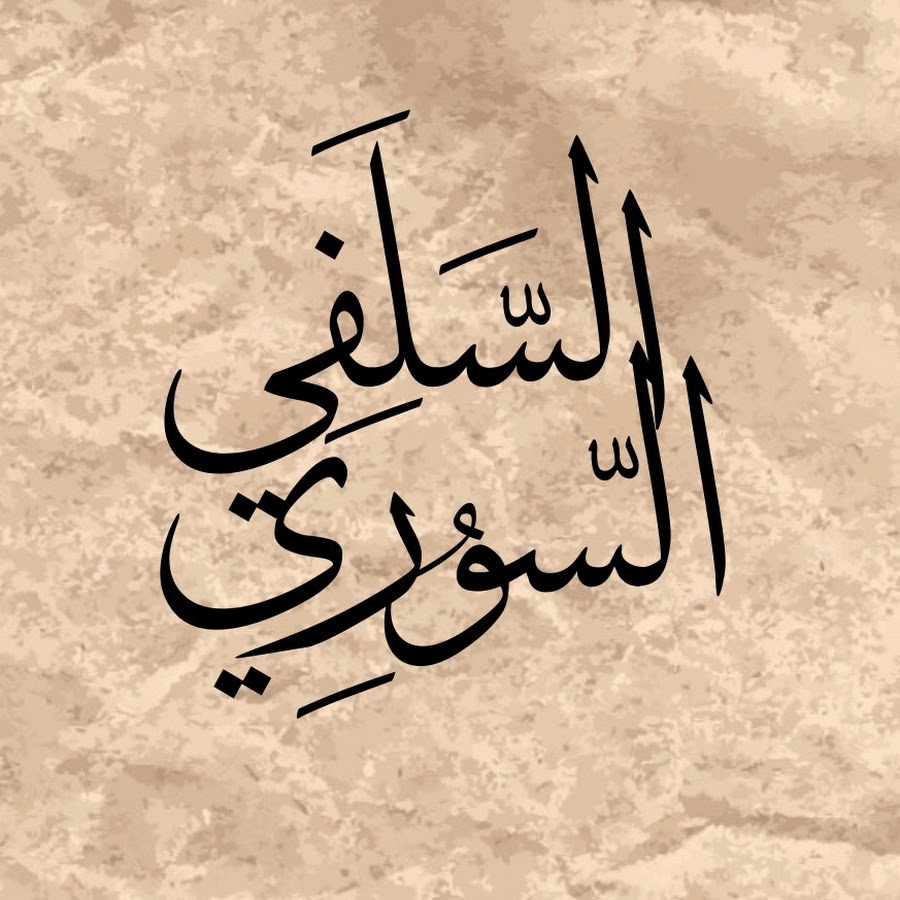 السَّلَفِي
السّوُرِي